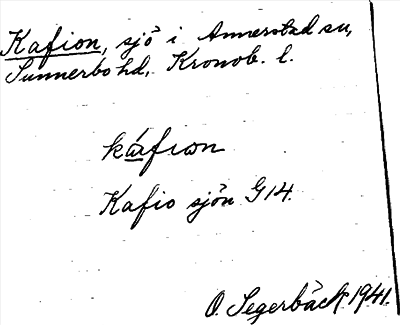 Kafion, sjö i Annerstad sn,
Sunnerbo hd, Kronob. l.
káfiɷn
Kafio sjön G14.
O. Segerbäck 1941.